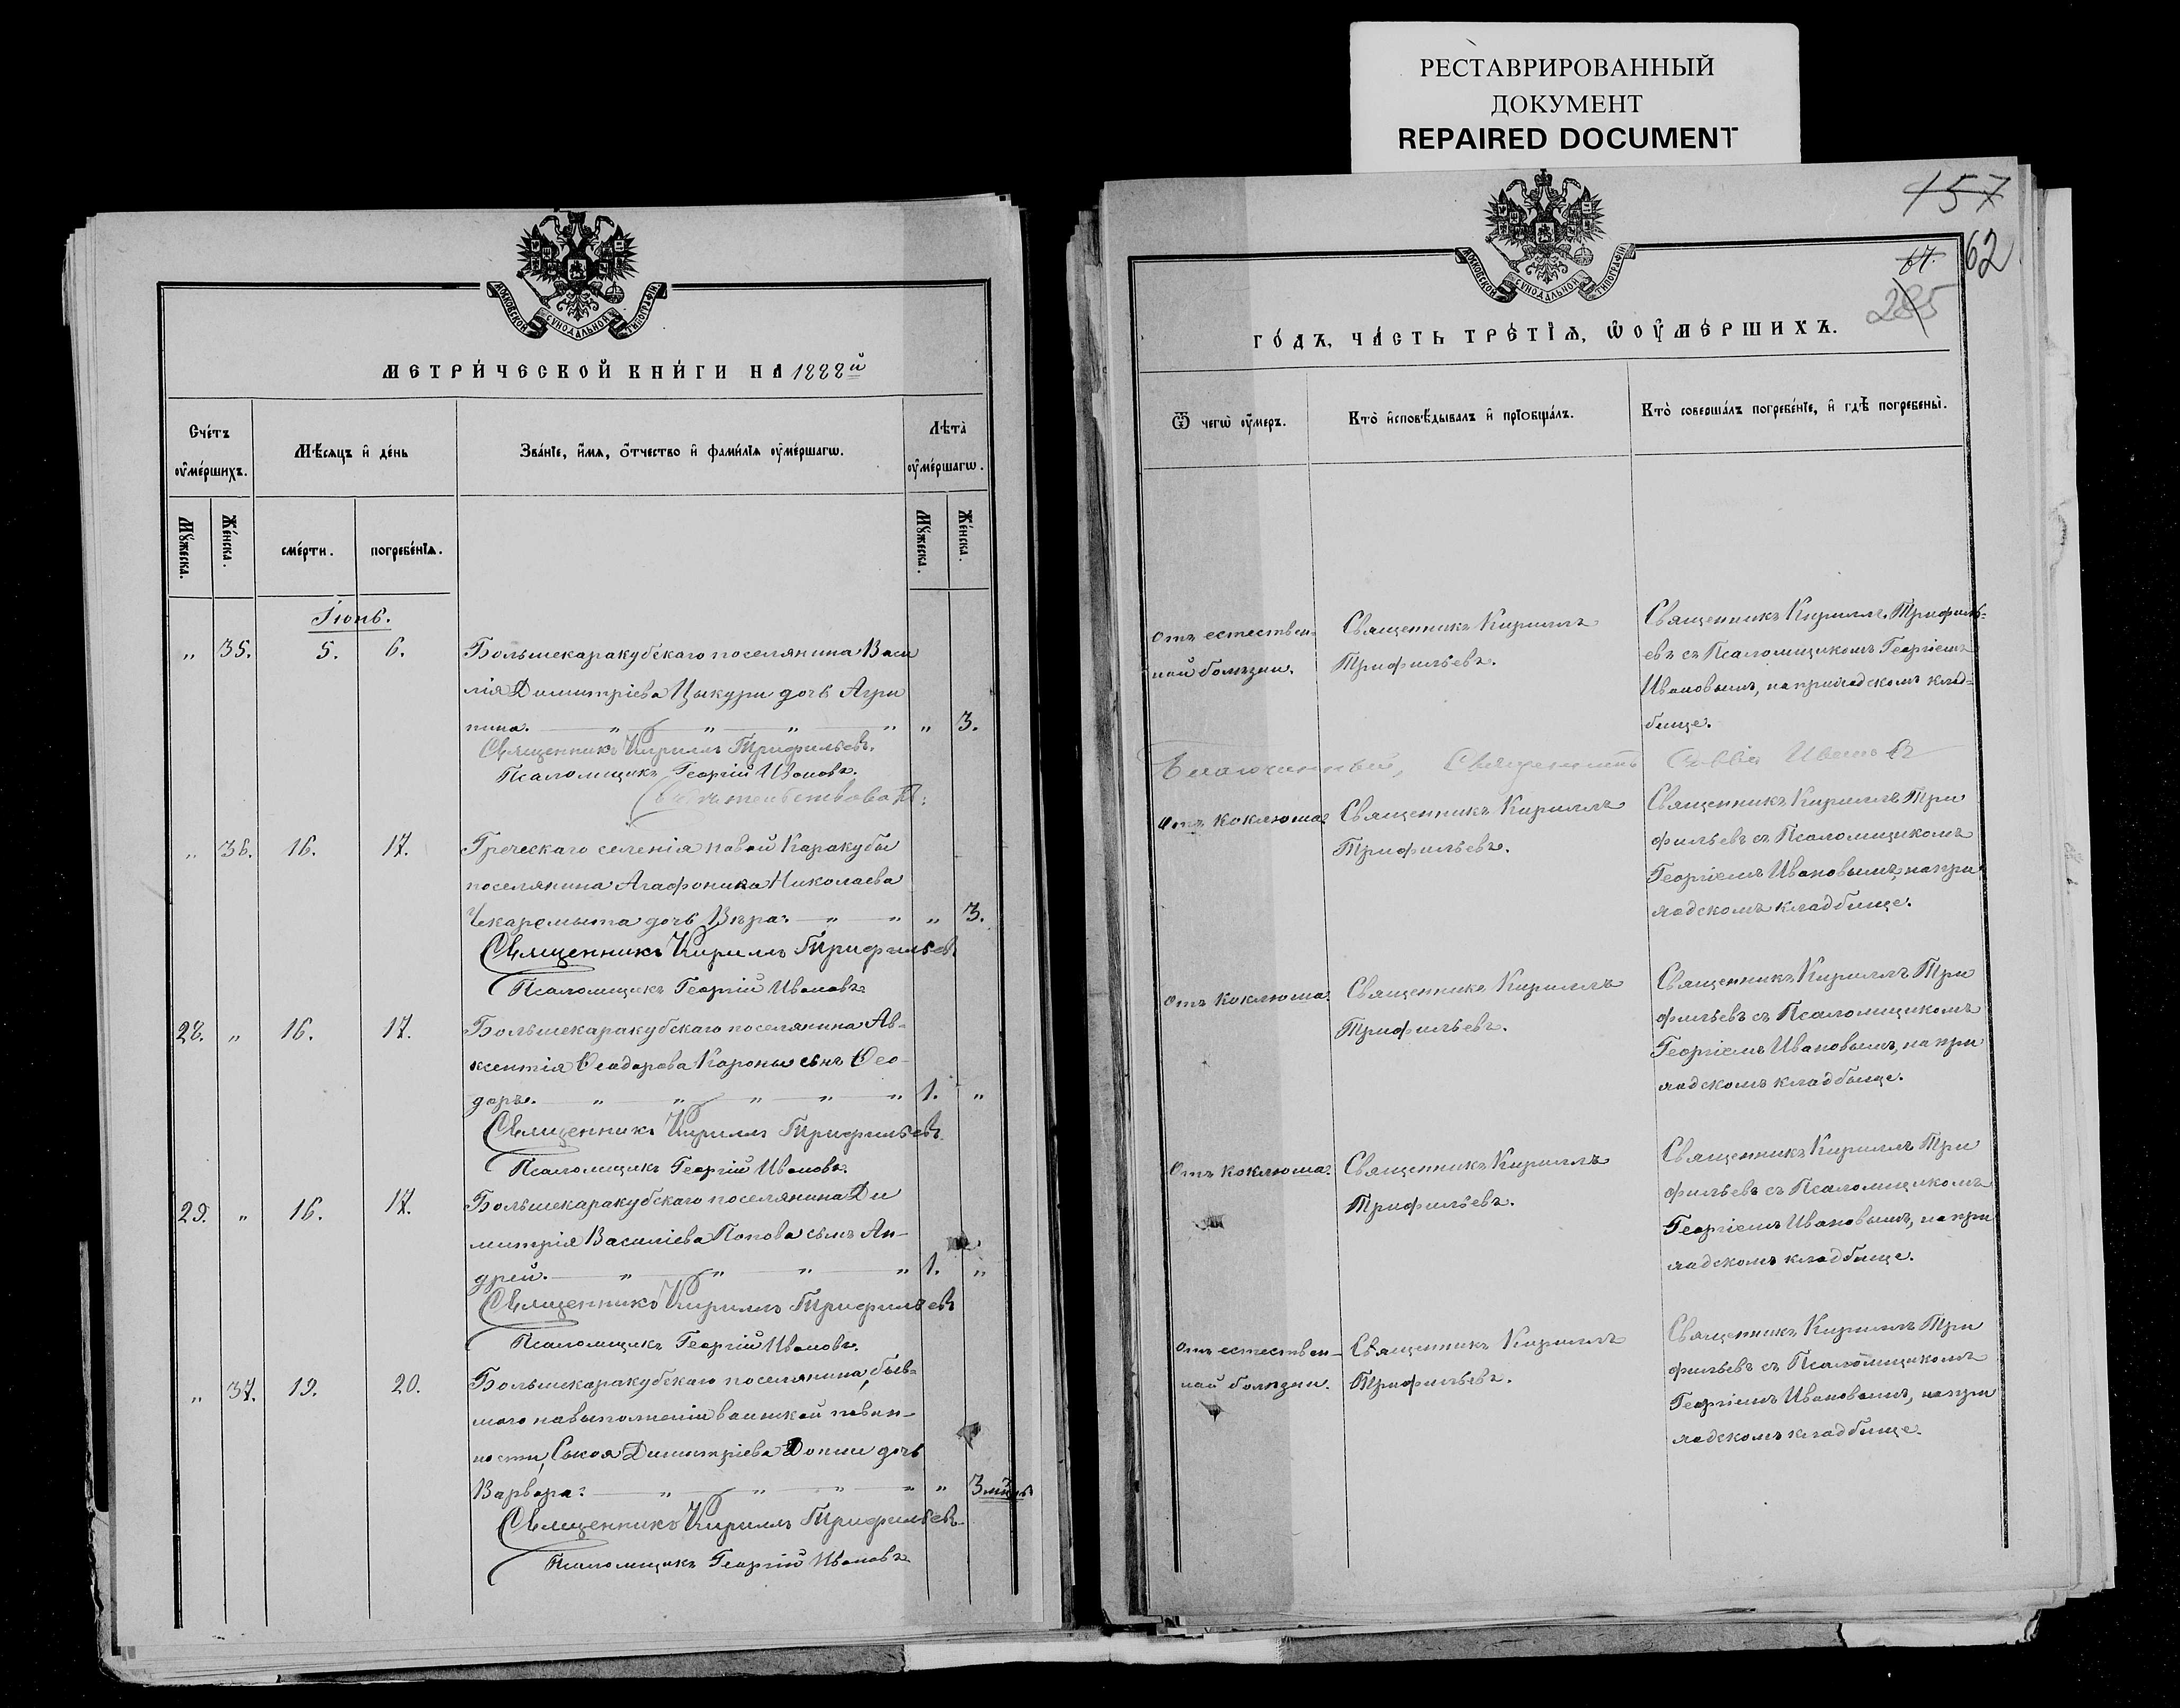 РЕСТАВРИРОВАННЫЙ
ДОКУМЕНТ
REPAIRED DOCUMENT
МОСКОВСКОЙ СУНОДАЛЬНОЙ ТИПОГРАФІИ
МЕТРИ́ЧЕСКОЙ КНИ́ГИ НА 1888й
Сче́тъ
ѹ҆ме́ршихъ.
Мѣ́сяцъ и҆ де́нь
Зва́нїе, и҆́мѧ, ѻ҆́тчество и҆ фами́лїѧ ѹ҆ме́ршагѡ.
Лѣта̀
ѹ҆ме́ршагѡ.
Мꙋ́жеска.
Же́нска.
сме́рти.
погребе́нїѧ.
Мꙋ́жеска.
Же́нска.
Іюнь.
„ 35. 5. 6. Большекаракубскаго поселянина Васи
лія Димитріева Цыкури дочь Агри
пина. „ „ „ „ „ 3.
Священникъ Кириллъ Трифильевъ.
Псаломщикъ Георгій Ивановъ.
Свидѣтельствовалъ:
„ 36. 16. 17. Греческаго селенія новой Каракубы
поселянина Агафоника Николаева
Чкаремыта дочь Вѣра. „ „ „ 3.
Священникъ Кириллъ Трифильевъ
Псаломщикъ Георгій Ивановъ
28. „ 16. 17. Большекаракубскаго поселянина Ав-
ксентія Ѳеодорова Хороны сынъ Ѳео-
доръ. „ „ „ „ „ 1. „
Священникъ Кириллъ Трифильевъ
Псаломщикъ Георгій Ивановъ.
29. „ 16. 17. Большекаракубскаго поселянина Ди
митрія Василіева Попова сынъ Ан-
дрей. „ „ „ „ 1. „
Священникъ Кириллъ Трифильевъ
Псаломщикъ Георгій Ивановъ.
„ 37. 19. 20. Большекаракубскаго поселянина, быв-
шаго на выполненіи воинской повин-
ности, Саввы Димитріева Допши дочь
Варвара. „ „ „ „ „ 3 мѣсяц.
Священникъ Кириллъ Трифильевъ
Псаломщикъ Георгій Ивановъ
157
62
67.
285
МОСКОВСКОЙ СУНОДАЛЬНОЙ ТИПОГРАФІИ
ГО́ДЪ, ЧА́СТЬ ТРЕ́ТЇѦ, Ѡ҆ ѸМЕ́РШИХЪ.
Ѿ чегѡ̀ ѹ҆́меръ.
Кто̀ и҆сповѣ́дывалъ и҆ прїѡбща́лъ.
Кто̀ соверша́лъ погребе́нїе, и҆ гдѣ̀ погребены̀.
Отъ естествен-
ной болѣзни.
Священникъ Кириллъ
Трифильевъ.
Священникъ Кириллъ Трифиль-
евъ съ Псаломщикомъ Георгіемъ
Ивановымъ, на приходскомъ клад-
бище.
Благочинный, Священникъ Савва Ивановъ
Отъ коклюша.
Священникъ Кириллъ
Трифильевъ.
Священникъ Кириллъ Три
фильевъ съ Псаломщикомъ
Георгіемъ Ивановымъ, на при
ходскомъ кладбище.
Отъ коклюша.
Священникъ Кириллъ
Трифильевъ.
Священникъ Кириллъ Три
фильевъ съ Псаломщикомъ
Георгіемъ Ивановымъ, на при
ходскомъ кладбище.
Отъ коклюша.
Священникъ Кириллъ
Трифильевъ.
Священникъ Кириллъ Три
фильевъ съ Псаломщикомъ
Георгіемъ Ивановымъ, на при
ходскомъ кладбище.
Отъ естествен-
ной болѣзни.
Священникъ Кириллъ
Трифильевъ.
Священникъ Кириллъ Три
фильевъ съ Псаломщикомъ
Георгіемъ Ивановымъ, на при
ходскомъ кладбище.